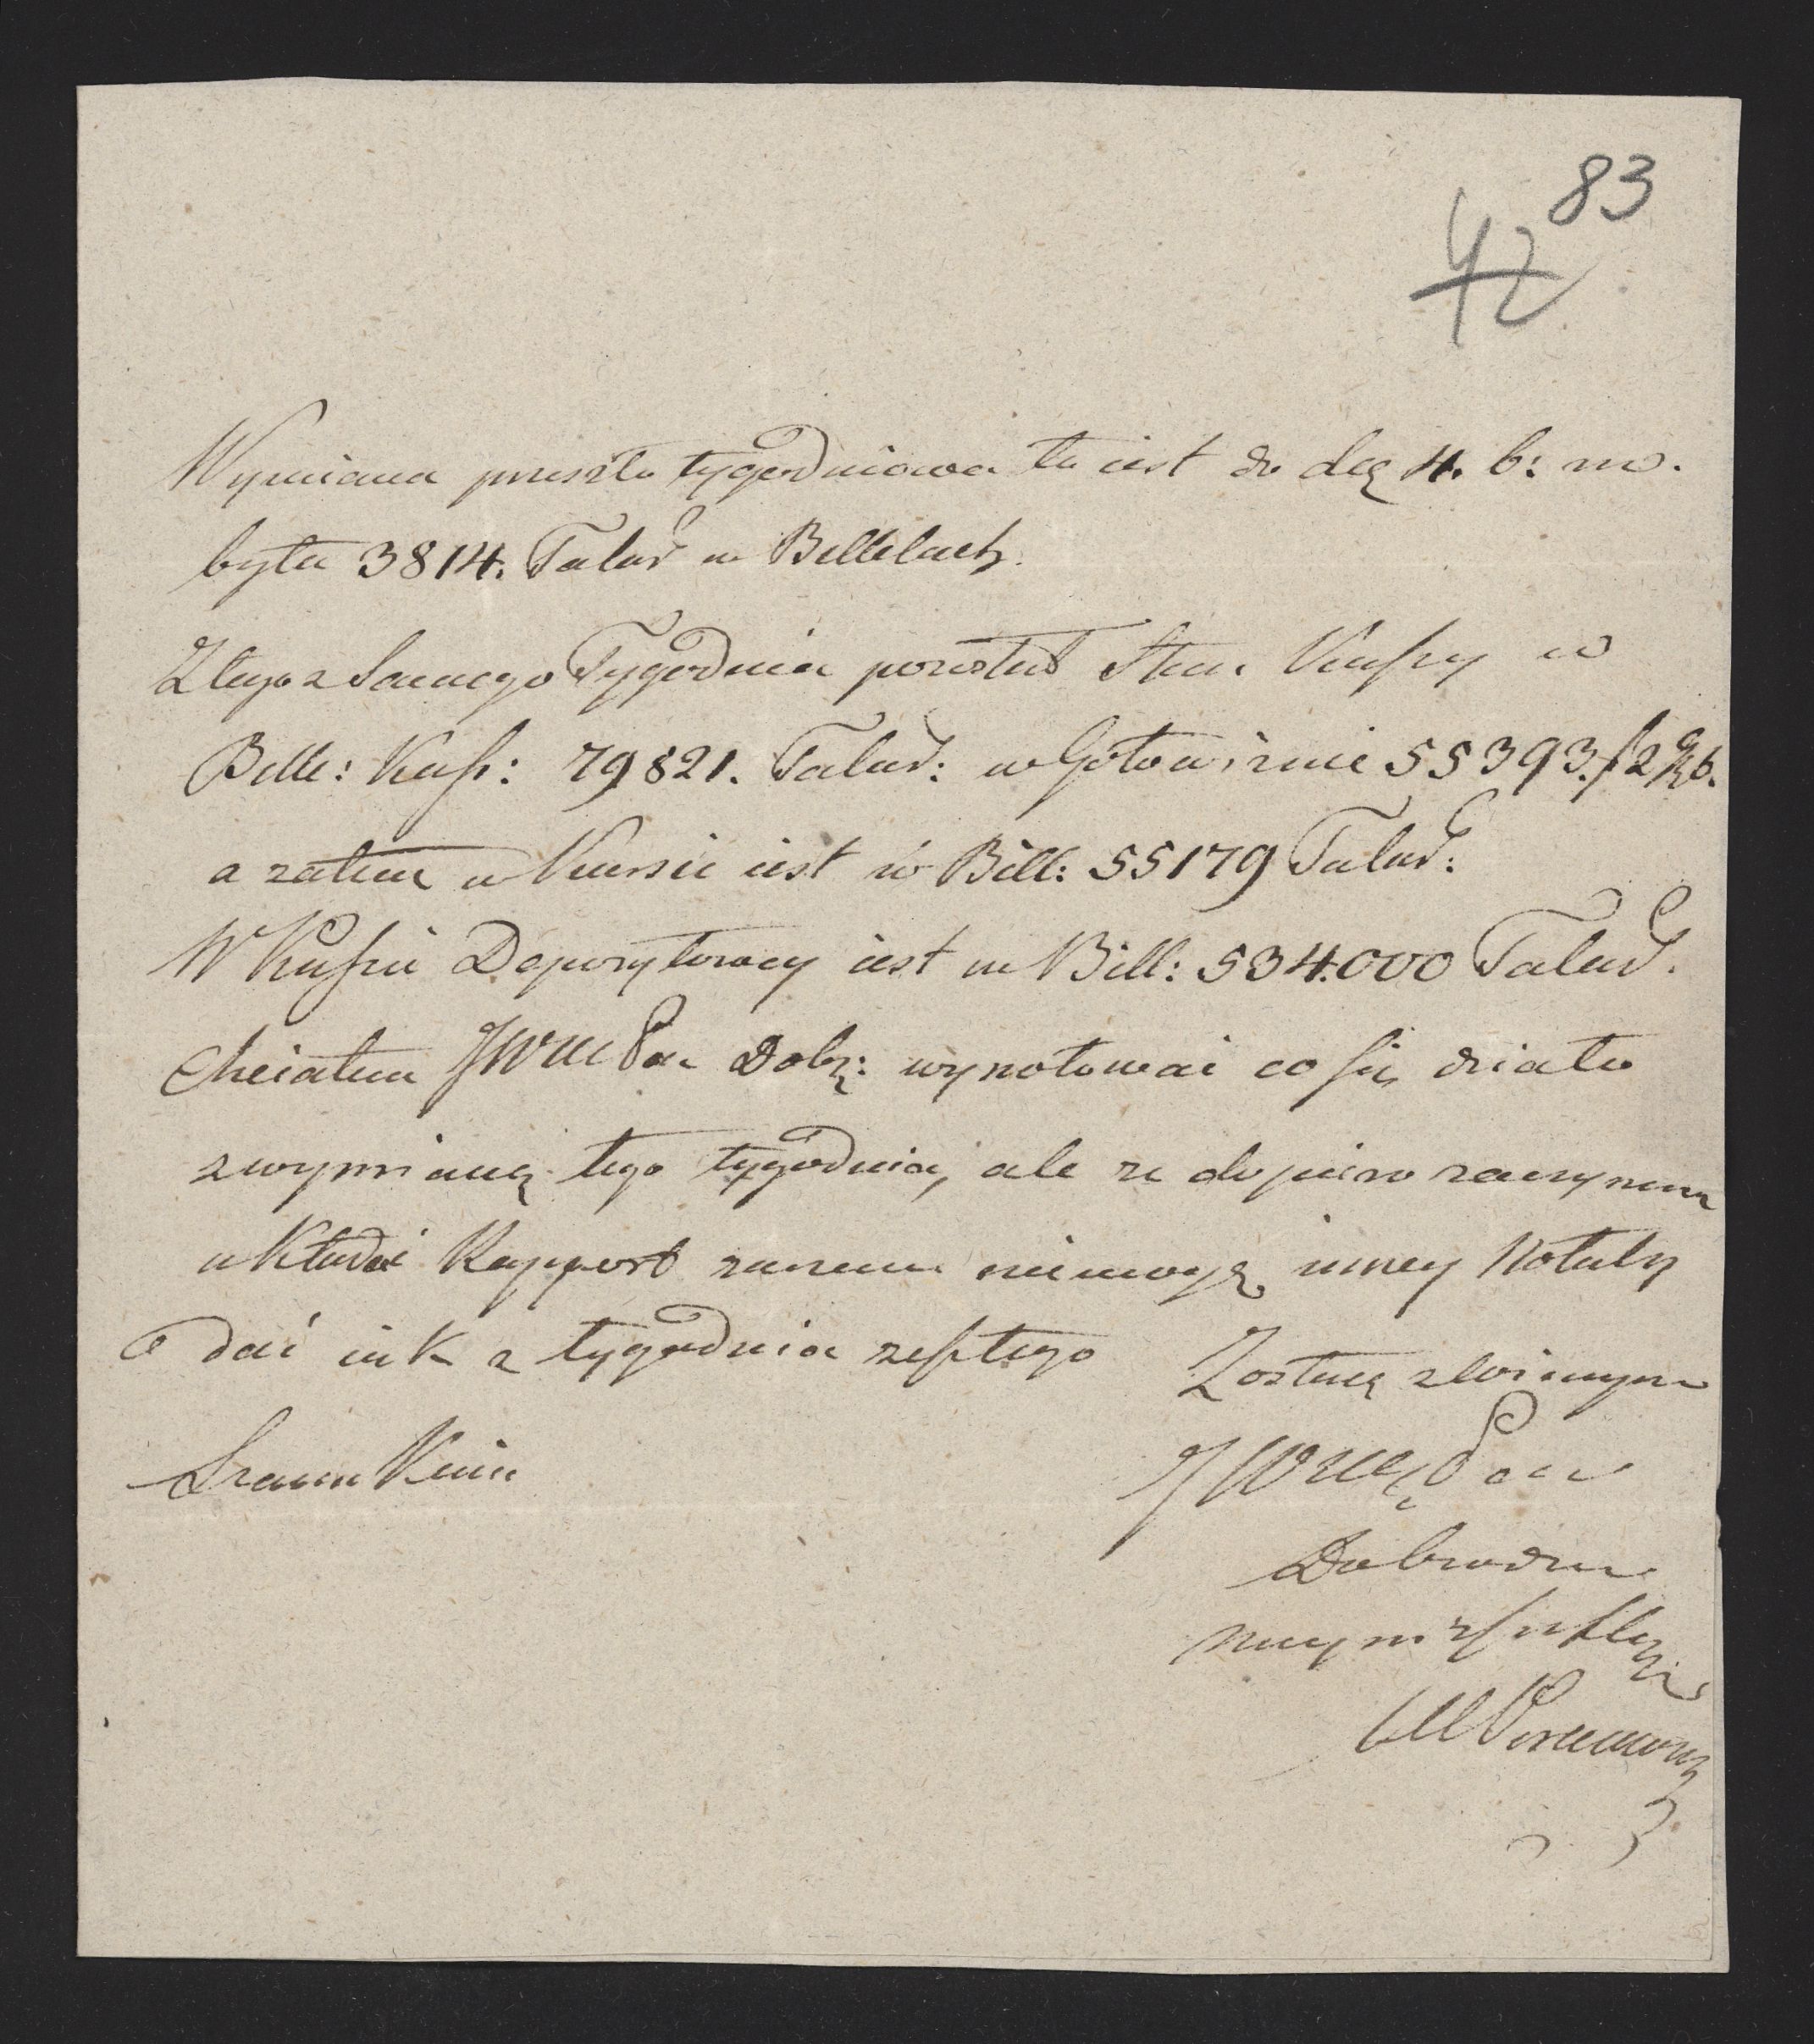 83
42
Wymiana przeszło tygodniowa to iest do dnia 4. b: m.
była 3814. Talar w Billetach.
Z tego samego Tygodnia pozostał Stan Kassy w
Bille: Kass: 79821. Talar: w Gotowiznie 55393. f 2 g 6.
a zatem w Kursie iest w Bill: 55179 Talar:
W Kassie Depozytowey iest w Bill: 534.000 Talar.
Chciałem JWW Pan Dobr: wynotować co się działo
z wymianą tego tygodnia, ale że dopiero zaczynam
układać Rapport zanim niemogę inney Notaty
dać iak z tygodnia zeszłego
Zostaię z winnym
Szacunkiem
JWW Pan
Dobrodz